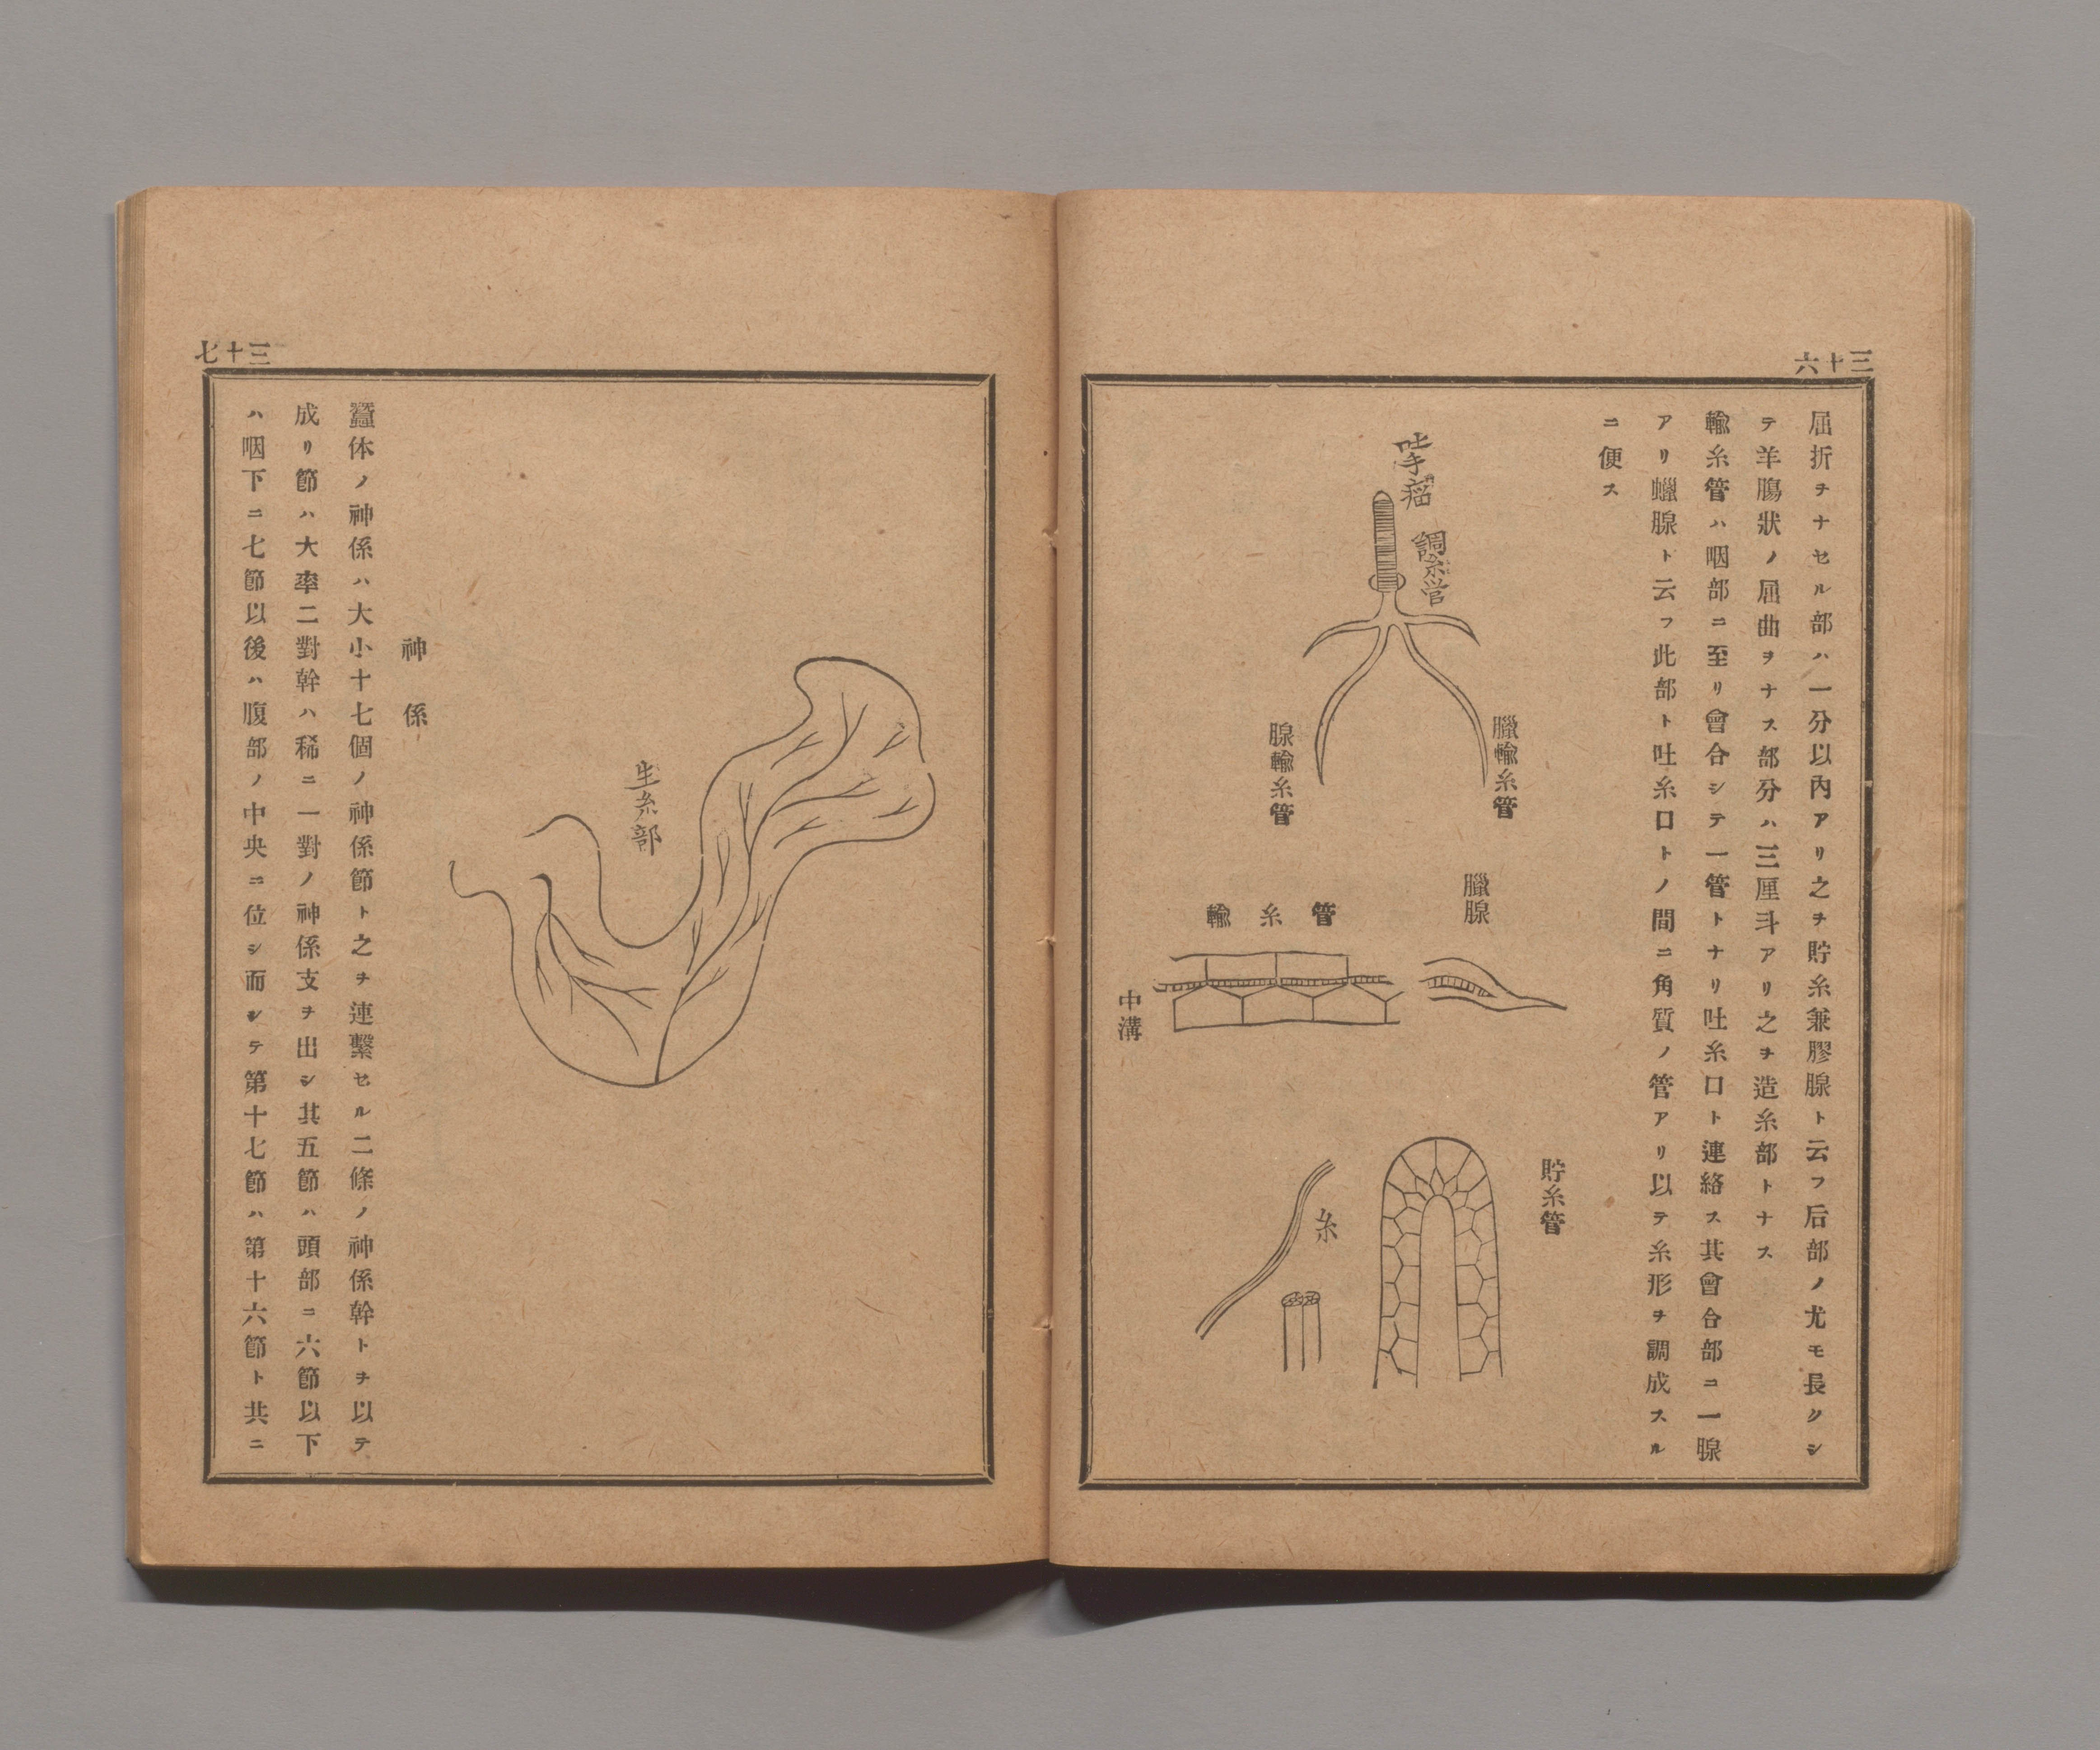 三十六
屈折ヲナセル部ハ一分以內アリ之ヲ貯糸兼膠腺ト云フ后部ノ尤モ長クシ
テ羊膓狀ノ屈曲ヲナス部分ハ三厘斗アリ之ヲ造糸部トナス
輸糸管ハ咽部ニ至リ會合シテ一管トナリ吐糸口ト連絡ス其會合部ニ一腺
アリ蠟腺ト云フ此部ト吐糸口トノ間ニ角質ノ管アリ以テ糸形ヲ調成スル
ニ便ス
調糸管
臘輸糸管
腺輸糸管
臘腺
輸糸管
中溝
貯糸管
糸
三十七
生糸部
神係
蠶体ノ神係ハ大小十七個ノ神係節ト之ヲ連繫セル二條ノ神係幹トヲ以テ
成リ節ハ大率二對幹ハ稀ニ一對ノ神係支ヲ出シ其五節ハ頭部ニ六節以下
ハ咽下ニ七節以後ハ腹部ノ中央ニ位シ而シテ第十七節ハ第十六節ト共ニ